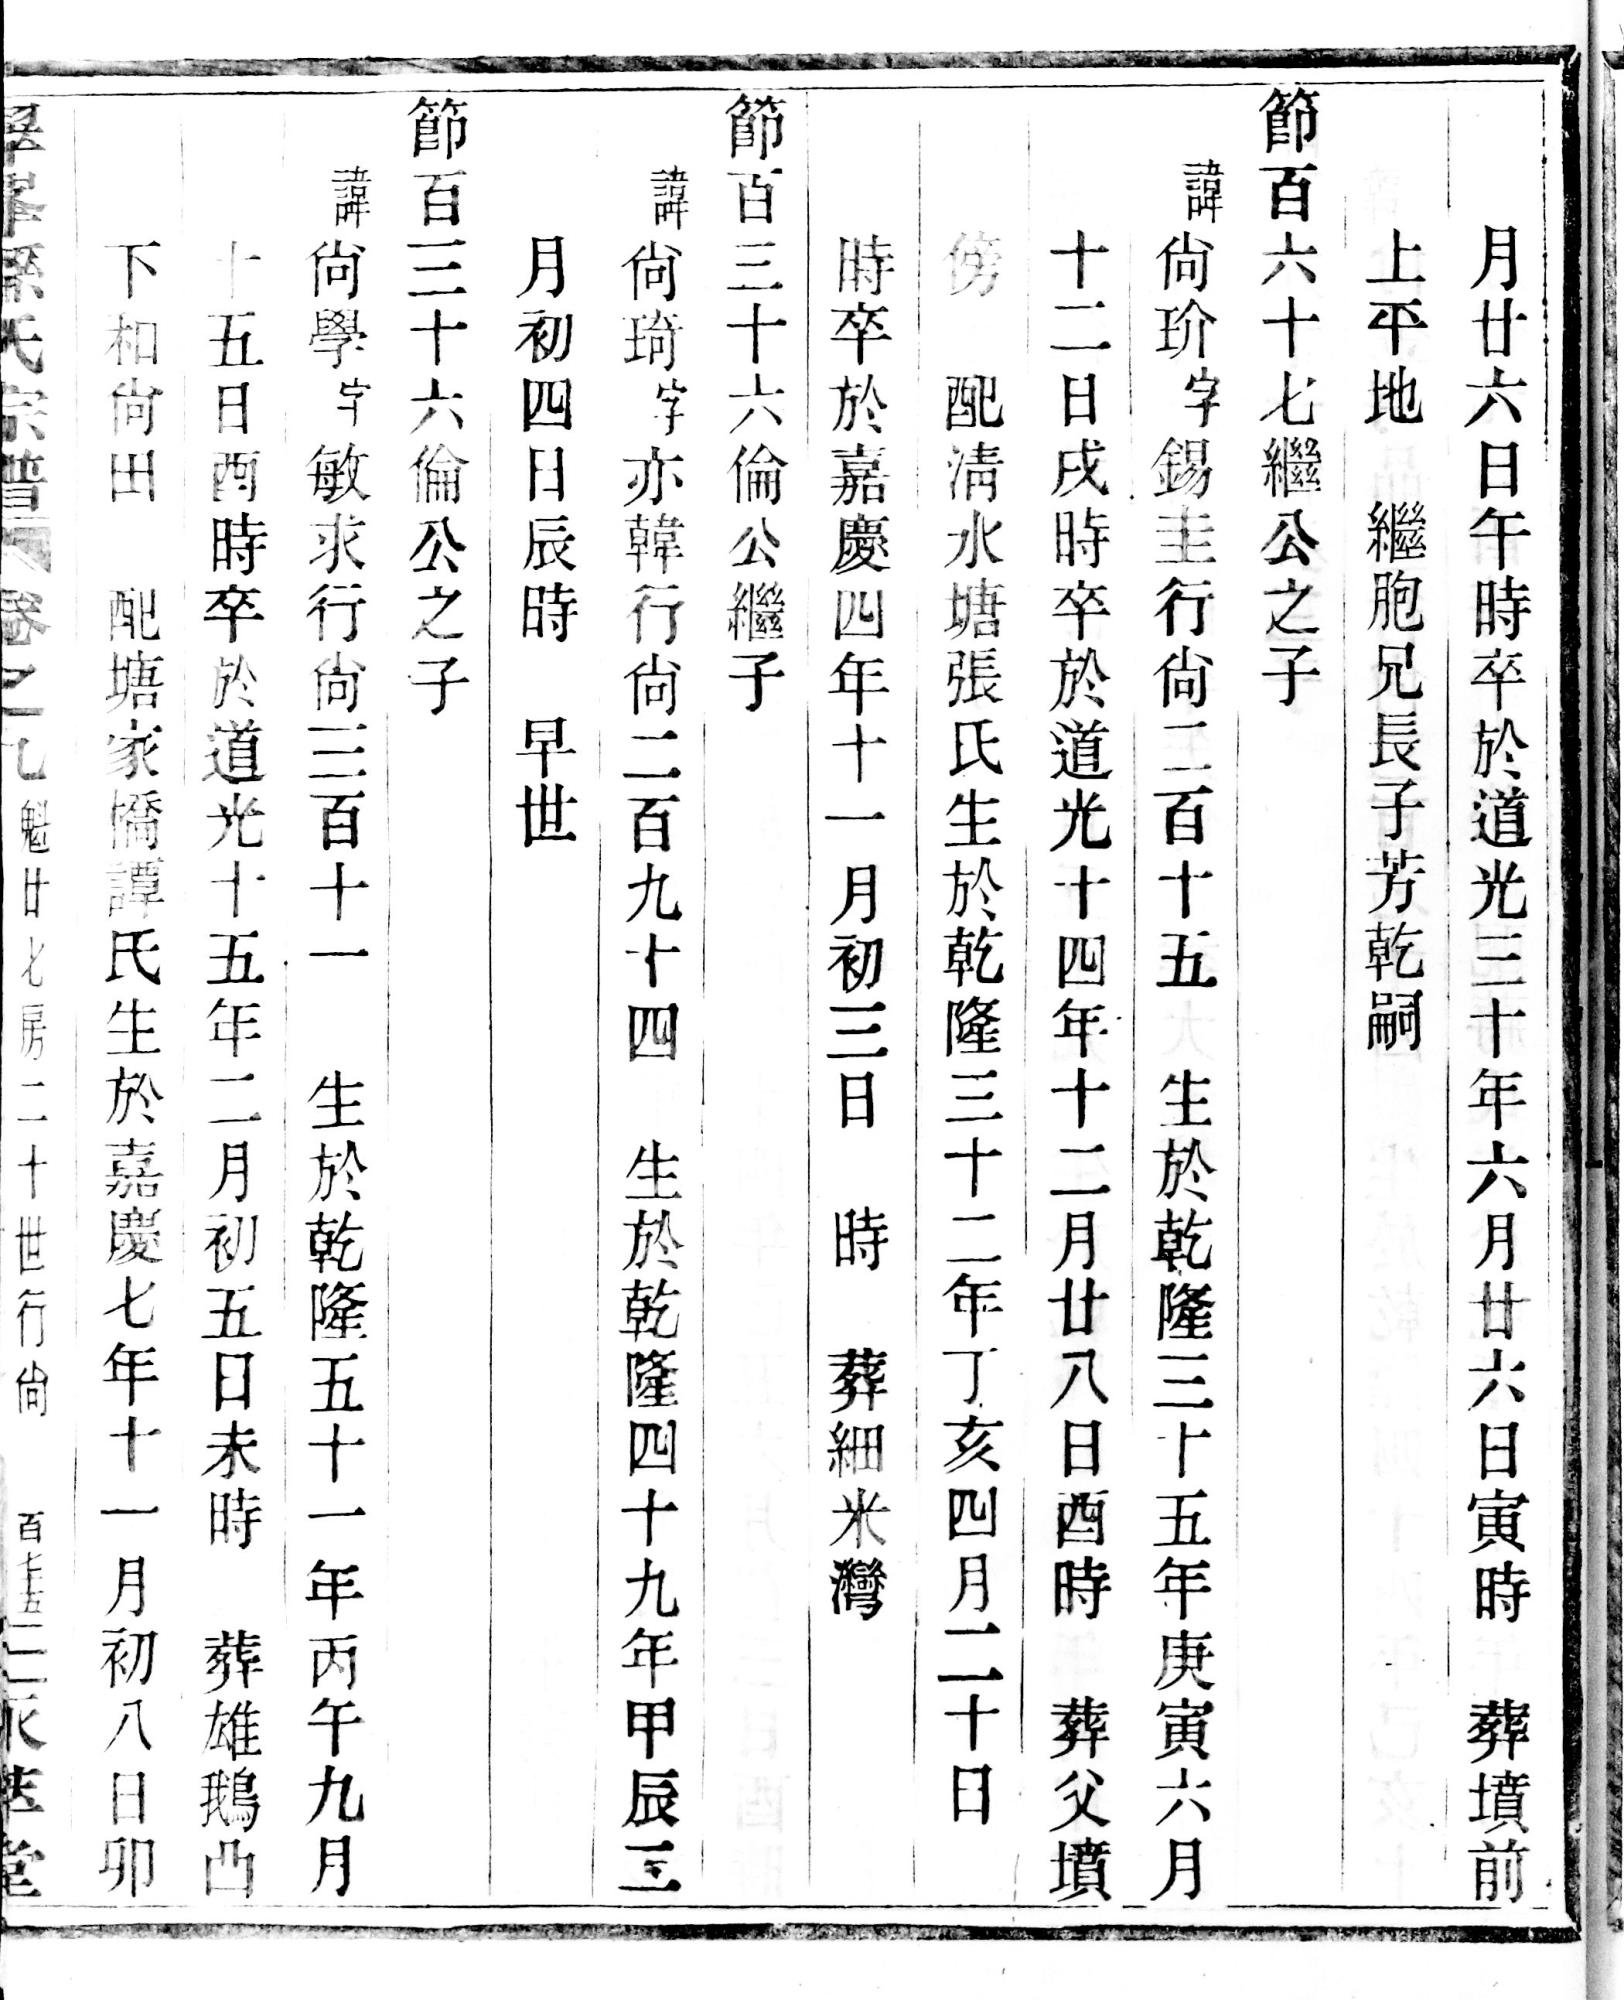 月廿六日午時卒於道光三十年六月廿六日寅時 葬墳前
上平地 繼胞兄長子芳乾嗣
節百六十七繼公之子
諱尙玠字錫圭行尙二百十五 生於乾隆三十五年庚寅六月
十二日戌時卒於道光十四年十二月廿八日酉時 葬父墳
傍 配淸水塘張氏生於乾隆三十二年丁亥四月二十日
時卒於嘉慶四年十一月初三日 時 葬細米灣
節百三十六倫公繼子
諱尙琦字亦韓行尙二百九十四 生於乾隆四十九年甲辰三
月初四日辰時 早世
節百三十六倫公之子
諱尙學字敏求行尙三百十一 生於乾隆五十一年丙午九月
十五日酉時卒於道光十五年二月初五日未時 葬雄鵝凸
下和尙田 配塘家橋譚氏生於嘉慶七年十一月初八日卯
氏宗譜 卷之九 魁廿七房二十世行尙 百七五 二 堂